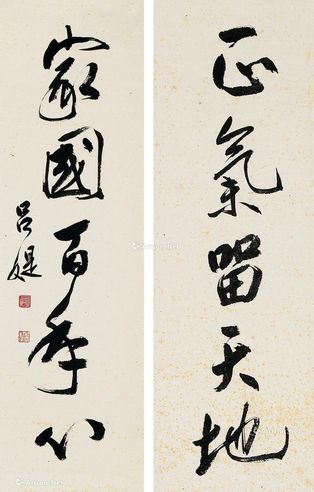 正氣留天地
家國百年心
呂媞